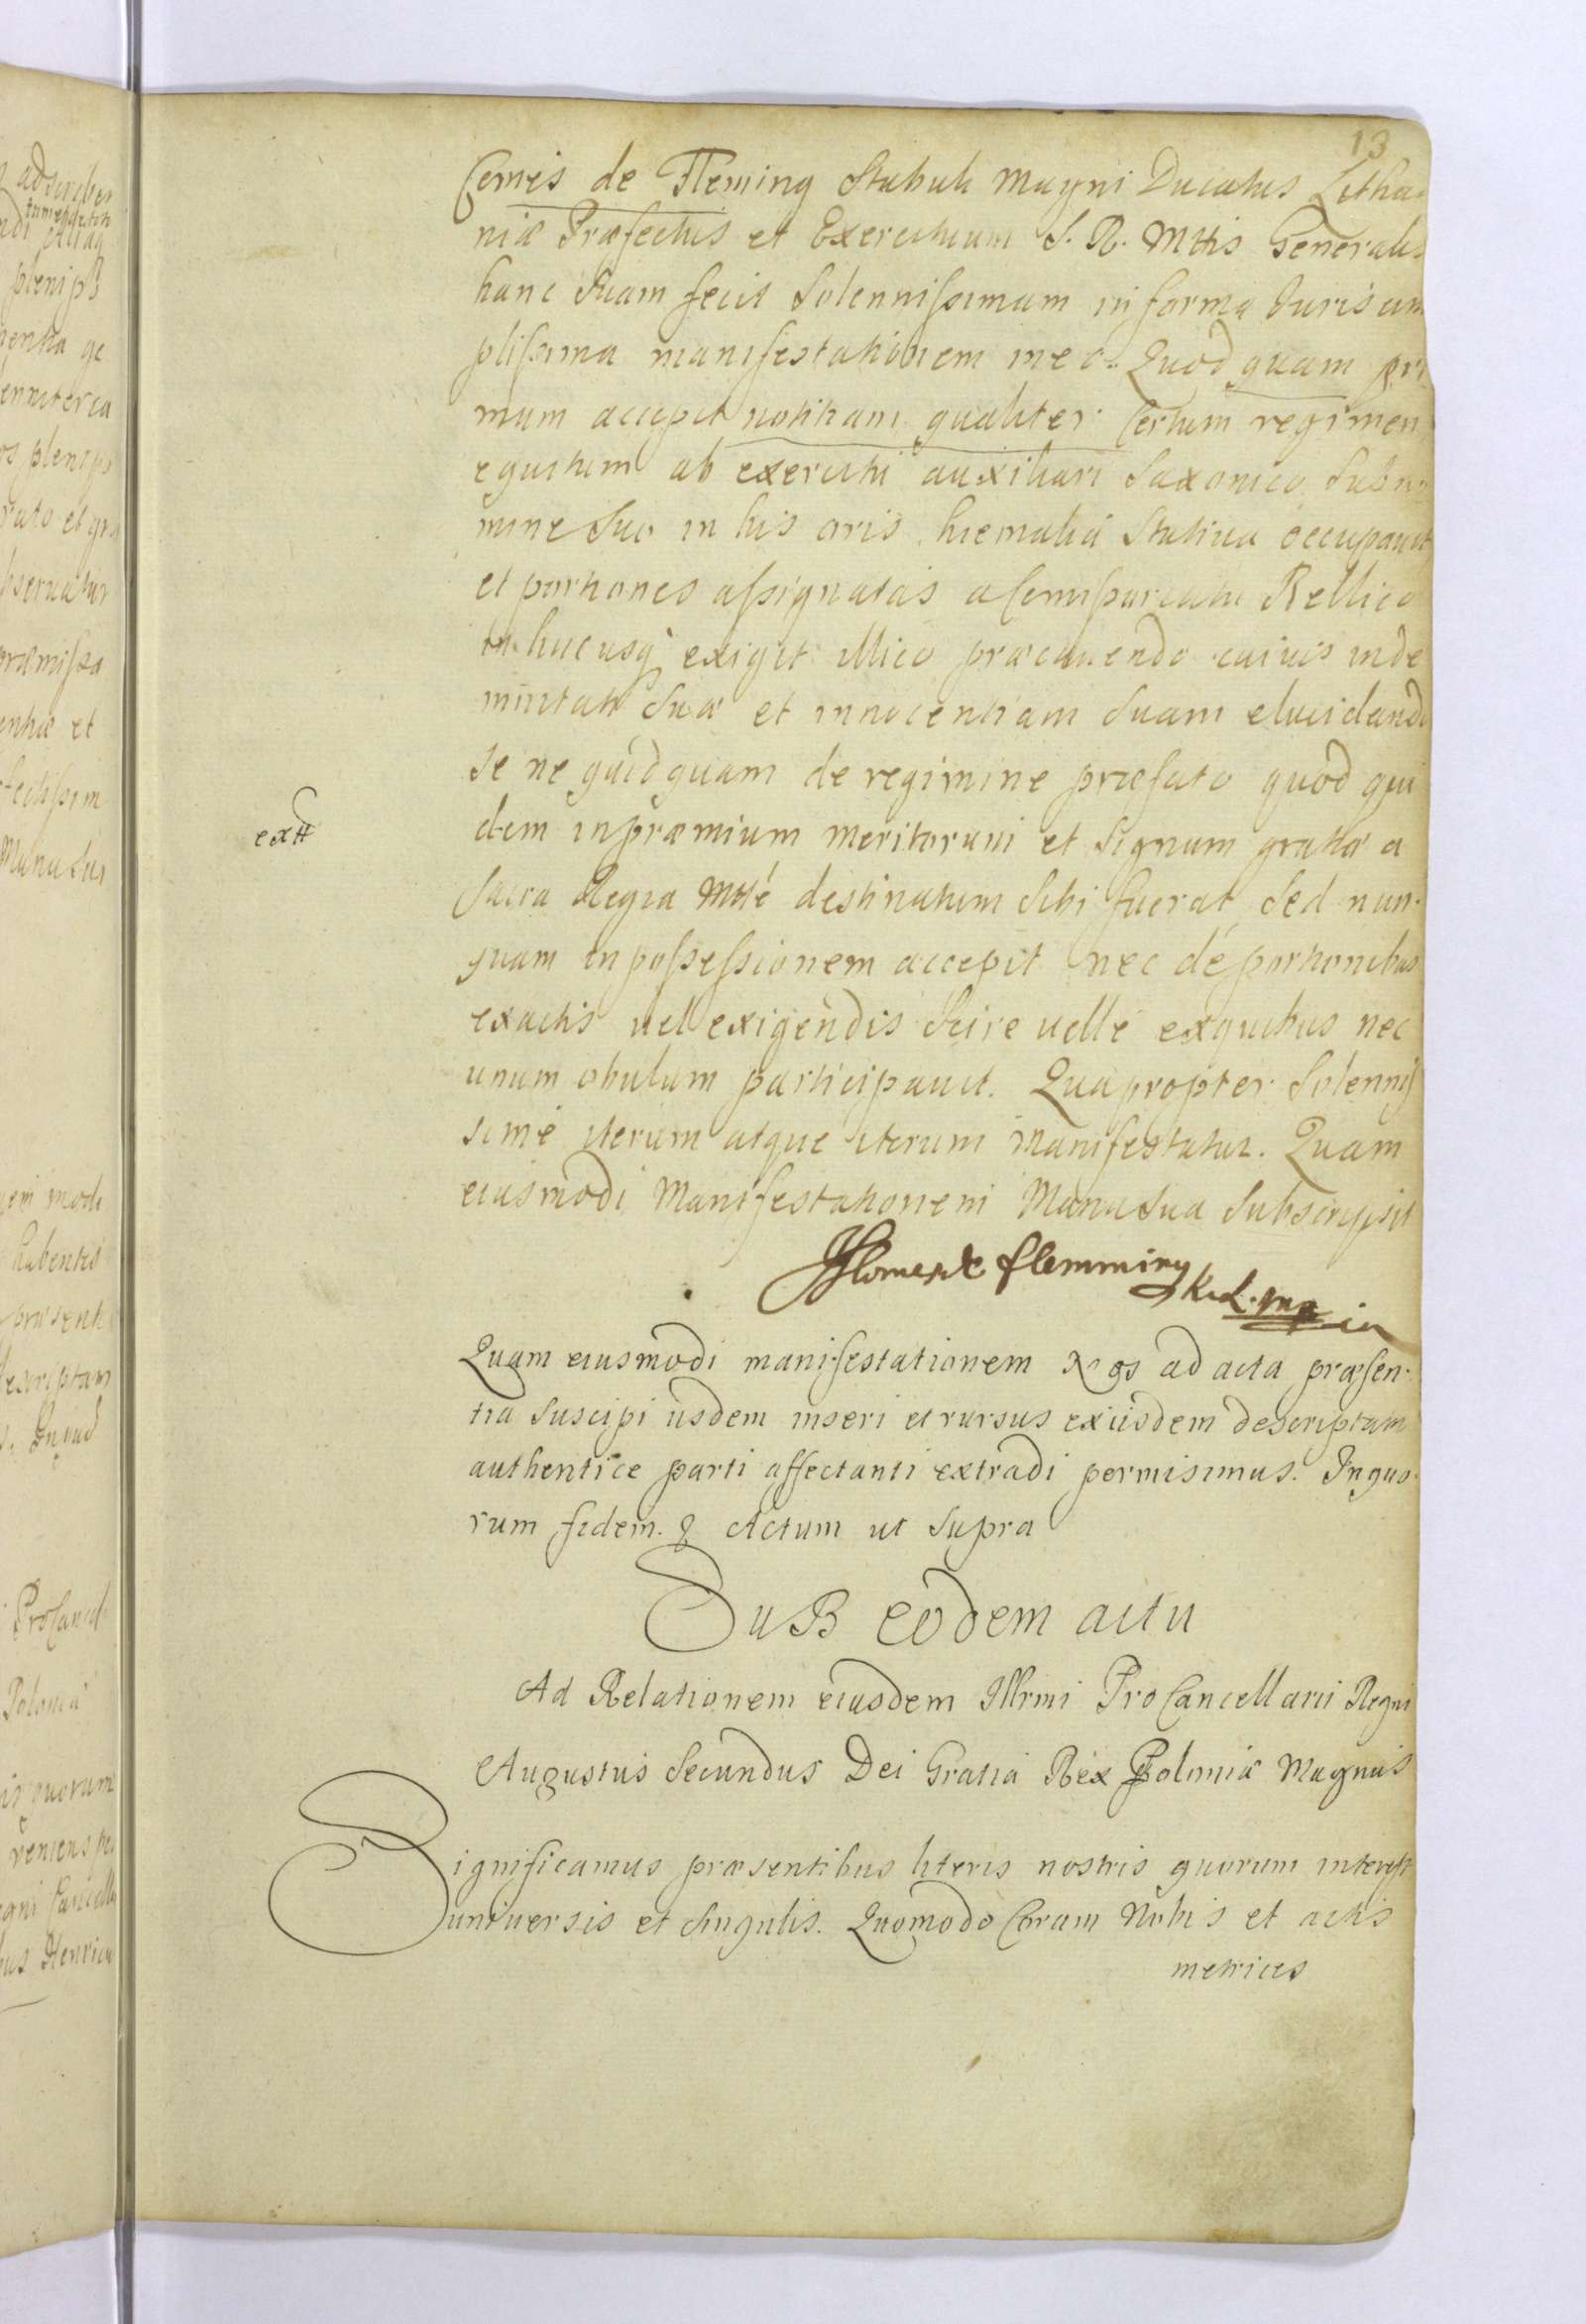 13
Comes de Fleming Stabuli Magni Ducatus Litha-
niæ Præfectus et Exercituum S. R. Mttis Generalis
hanc Suam fecit Solennissimam in forma Juris am
plissima manifestationem in ea. Quod quam pri
mum accepit notitiam qualiter Certum regimen
equitum ab exercitu auxiliari Saxonico Sub no-
mine Suo in his oris hiemalia Stativa occupavit
et portiones assignatas a Comissariatu Bellico
in hucusq exigit illico præcavendo cuivis inde
mnitati Suæ et innocentiam Suam elucidando
se ne quidquam de regimine præfato quod qui
dem in præmium meritorum et Signum gratiæ a
Sacra Regia Mtté destinatum Sibi fuerat Sed nun-
quam in possessionem accepit nec dé portionibus
exactis vel exigendis Scire velle ex quibus nec
unum obulum participavit. Quapropter Solennis
simé iterum atque iterum Manifestatur. Quam
eiusmodi Manifestationem Manu Sua Subscripsit
extt
de flemming
Quam eiusmodi manifestationem Nos ad acta præsen-
tia Suscipi iisdem inseri et rursus ex iisdem descriptam
authentice parti affectanti extradi permisimus. In quo-
rum fidem. Actum ut Supra
SuB eodem actu
Ad Relationem eiusdem Illrmi ProCancellarii Regni
Augustus Secundus Dei Gratia Rex Poloniæ Magnus
Significamus præsentibus literis nostris quorum interest
universis et Singulis. Quomodo Coram Nobis et actis
metrices